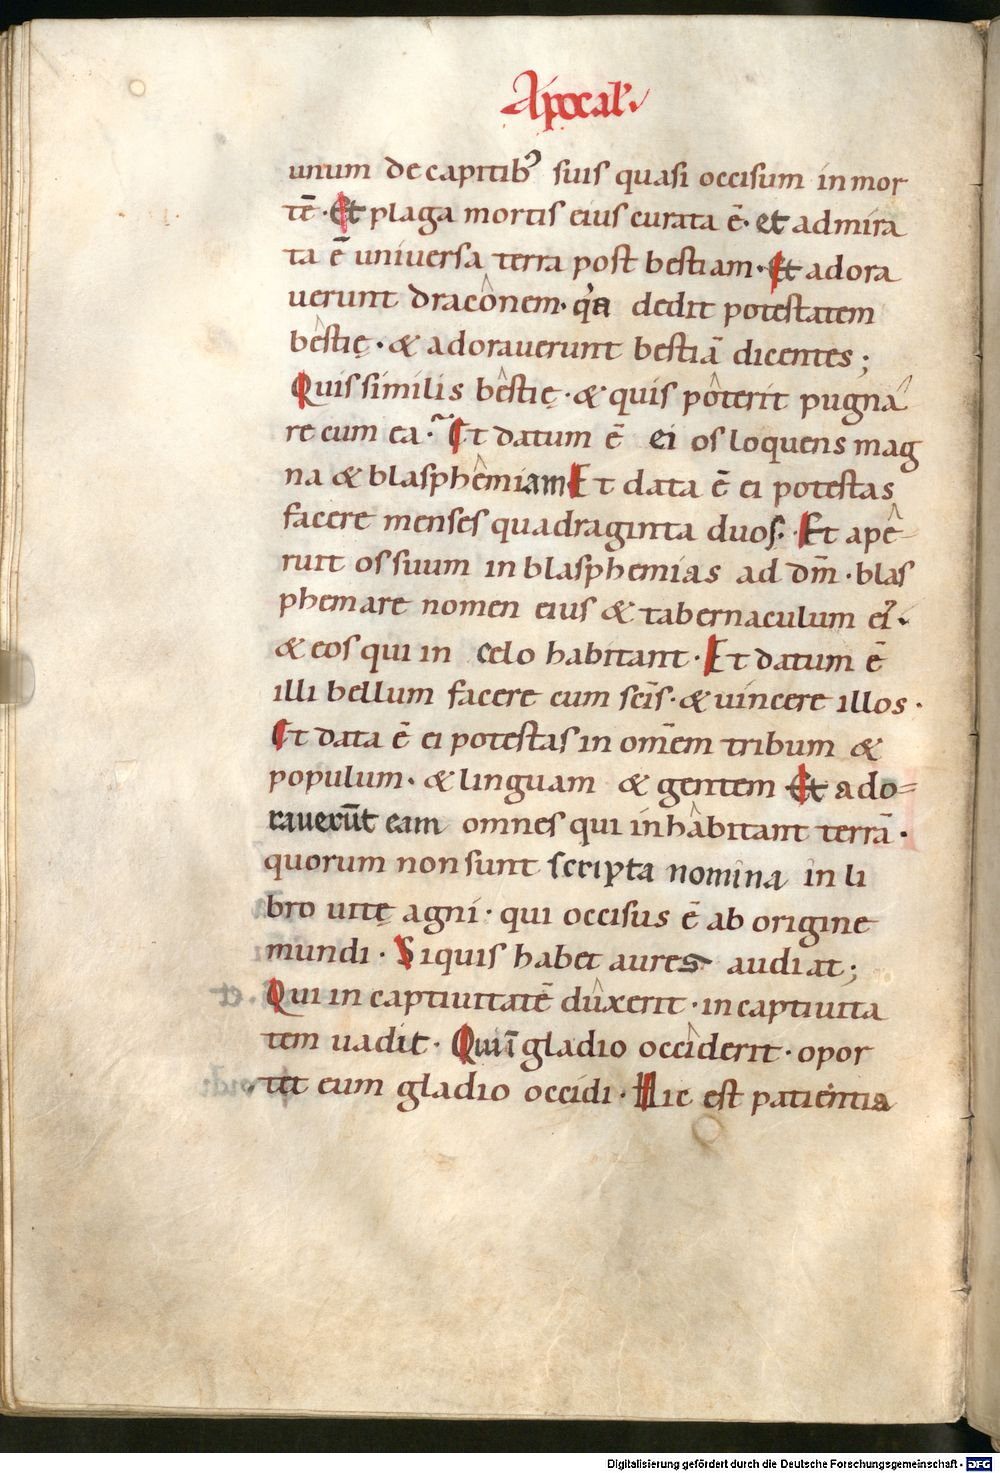 Apocal'.
unum de capitib᾽ suis quasi occisum in mor
tē · Et plaga mortis eius curata ē · et admira
ta ē universa terra post bestiam · Et adora
uerunt draconem · qͥa dedit potestatem
bestię · & adorauerunt bestiā dicentes ;
Quis similis bestię · & quis poterit pugna
re cum ea · Et datum ē ei os loquens mag
na & blasphemiam Et data ē ei potestas
facere menses quadraginta duos · Et ape-
ruit os suum in blasphemias ad dm̄ · blas
phemare nomen eius & tabernaculum ei᾽ ·
& eos qui in celo habitant · Et datum ē
illi bellum facere cum sc̄is · & uincere illos ·
Et data ē ei potestas in om̄em tribum &
populum · & linguam & gentem Et ado=
rauerūt eam omnes qui inhabitant terrā ·
quorum non sunt scripta nomina in li
bro uitę agni · qui occisus ē ab origine
mundi · Siquis habet aures audiat ;
Qui in captiuitatē duxerit · in captiuita
tem uadit · Qui ī gladio occiderit · opor
tet eum gladio occidi · Hic est patientia
Digitalisierung gefördert durch die Deutsche Forschungsgemeinschaft - DFG